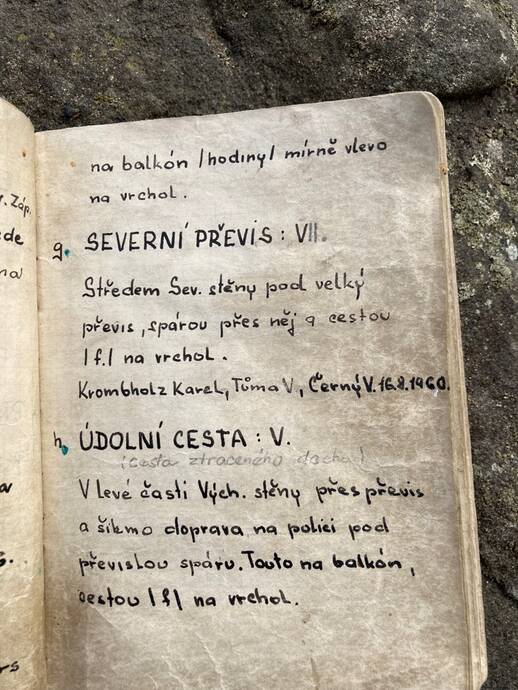 na balkón /hodiny/ mírně vlevo
na vrchol.
g. SEVERNÍ PŘEVIS: VII.
Středem Sev. stěny pod velký
převis, spárou přes něj a cestou
/f./ na vrchol.
Krombholz Karel, Tůma V., Černý V. 16.8.1960.
h. ÚDOLNÍ CESTA: V.
(cesta ztraceného
V levé části Vých. stěny přes převis
a šikmo doprava na polici pod
převislou spáru. Touto na balkón,
cestou /f/ na vrchol.